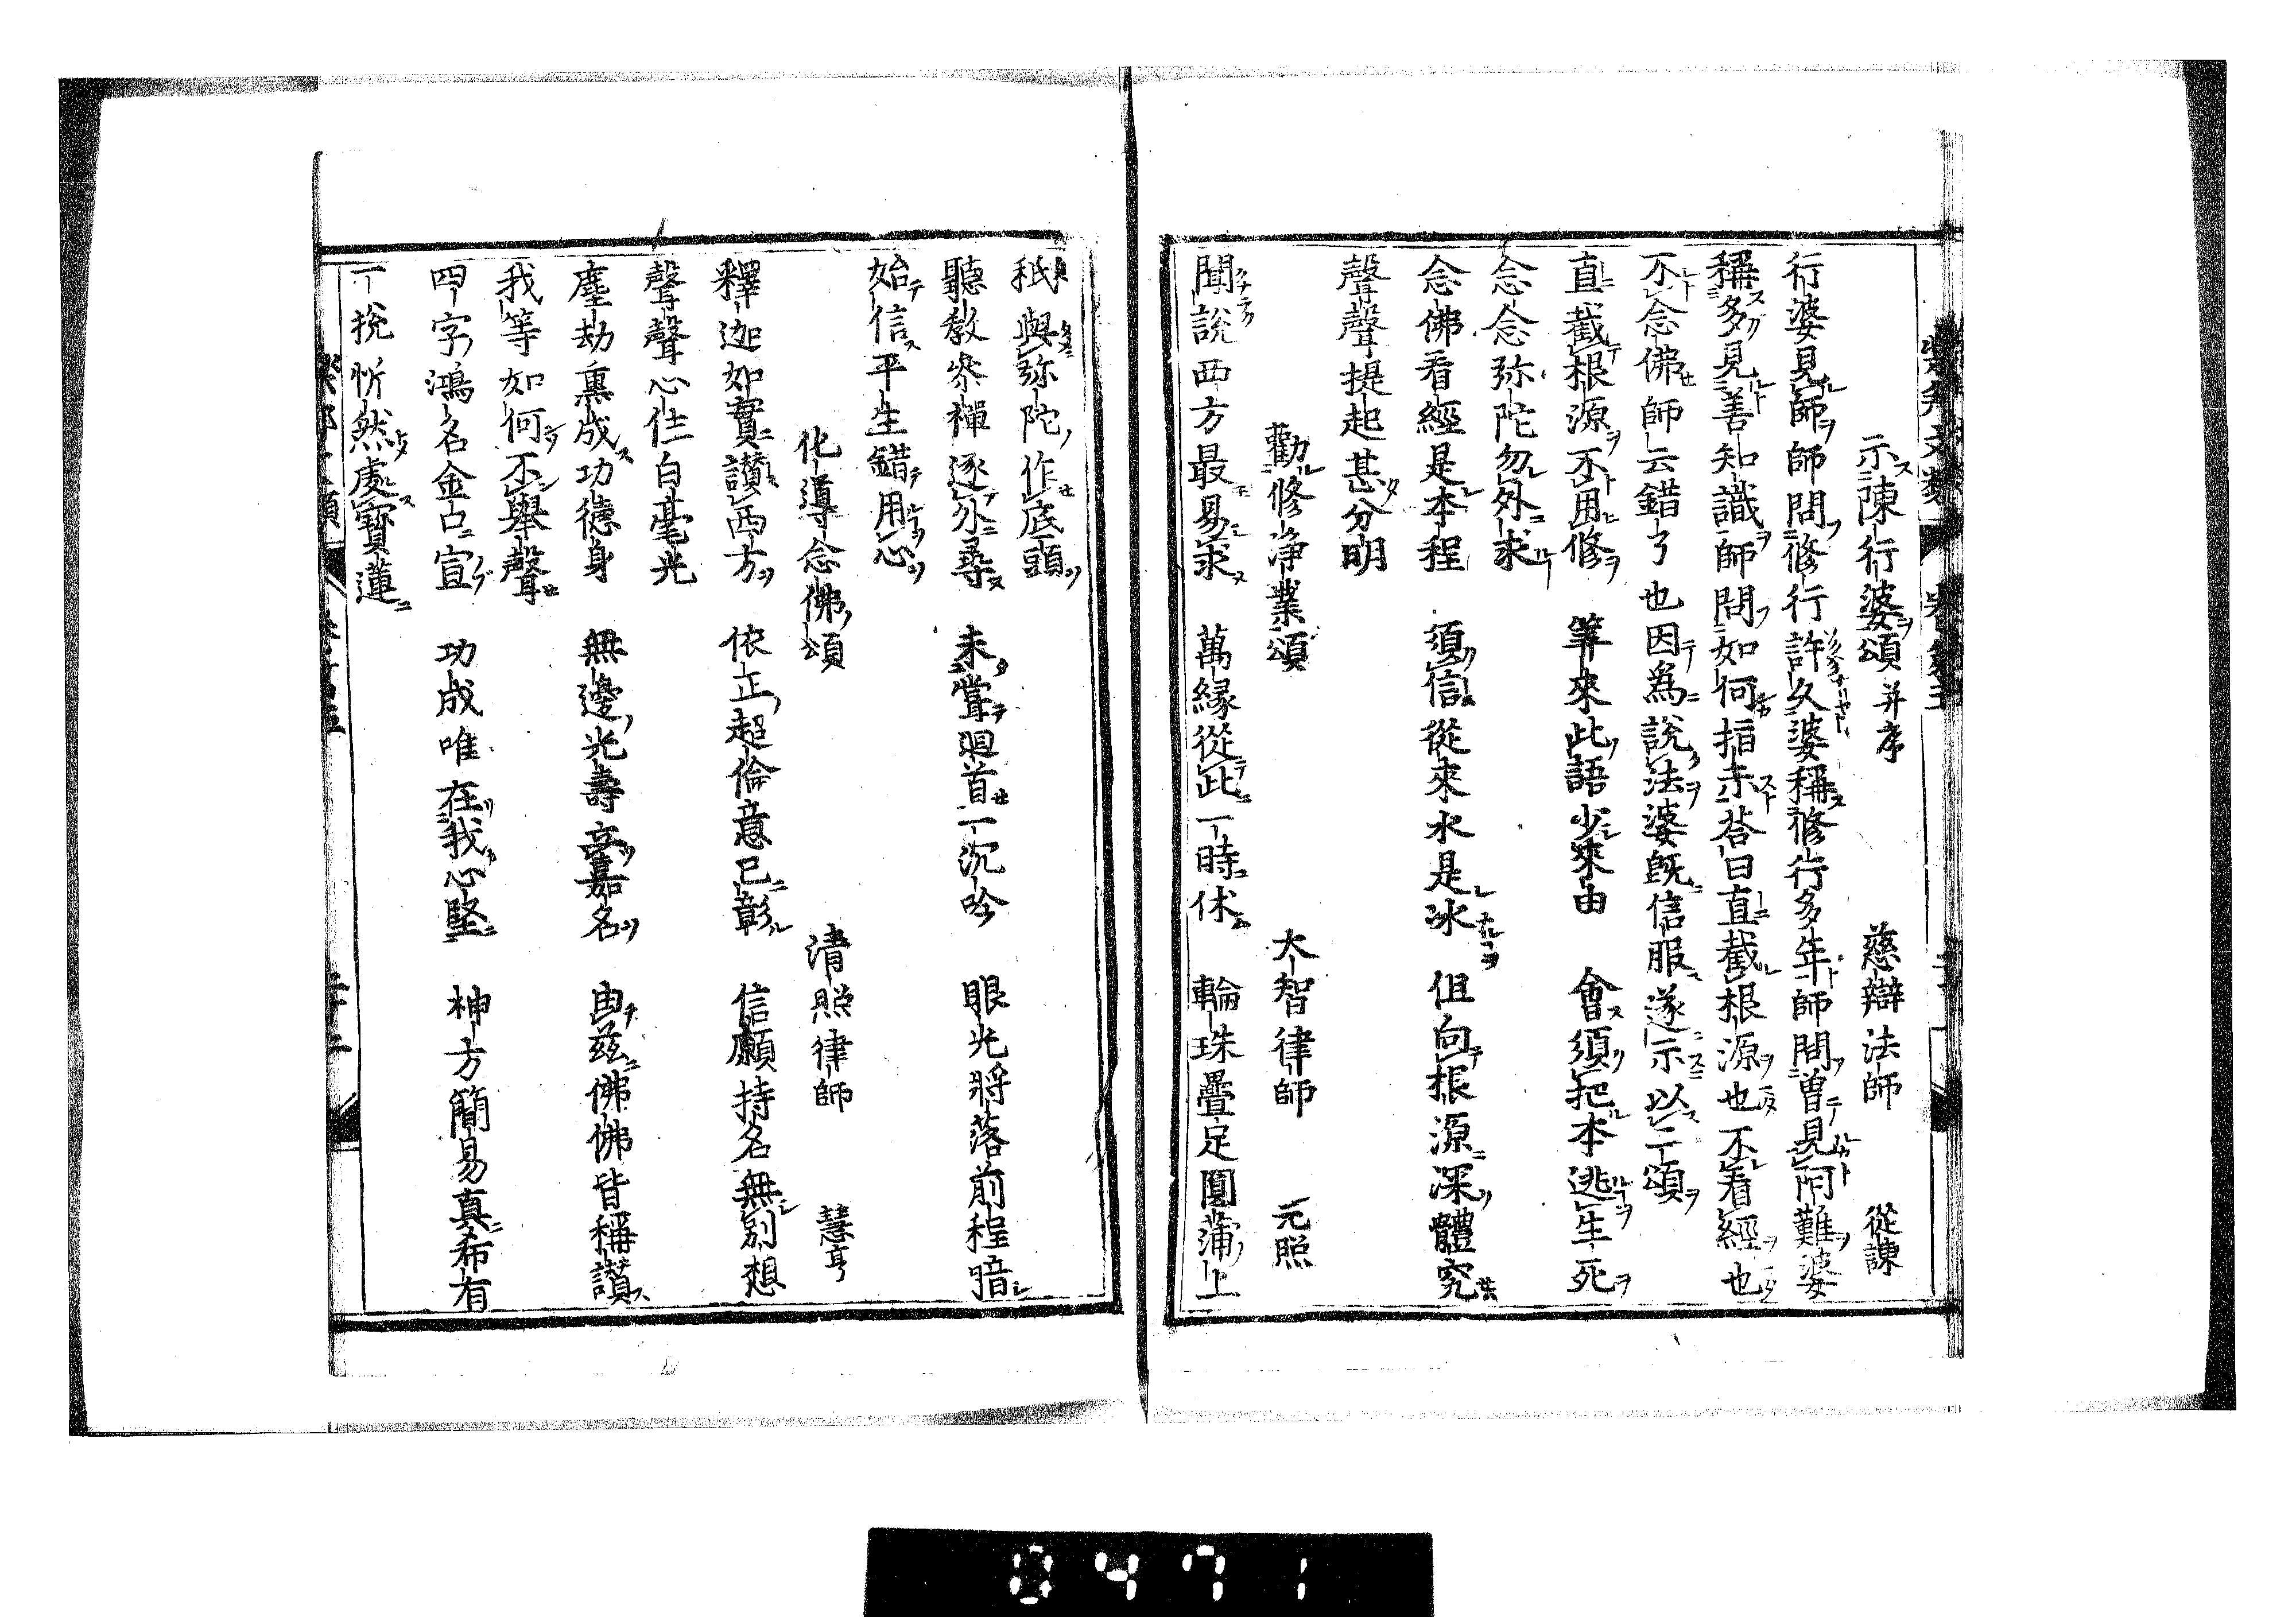 示陳行婆頌 并序 慈辯法師 從諫
行婆見師師問修行許久婆稱修行多年師問曾見阿難婆
稱多見善知識師問如何指示荅曰直截根源也不看經也
不念佛師云錯了也因為說法婆既信服遂示以二頌
直截根源不用修 筭來此語少來由 會須把本逃生死
念念弥陀勿外求
念佛看經是本程 須信從來水是冰 但向根源深體究
聲聲提起甚分明
勸修淨業頌 大智律師 元照
聞說西方最易求 萬緣從此一時休 輪珠疊足圓蒲上
秖與弥陀作底頭
聽教參禪逐外尋 未甞廻首一沉吟 眼光將落前程暗
始信平生錯用心
化導念佛頌 清照律師 慧亨
釋迦如實讚西方 依正超倫意已彰 信願持名無別想
聲聲心住白毫光
塵劫熏成功德身 無邊光壽立嘉名 由茲佛佛皆稱讃
我等如何不舉聲
四字鴻名金口宣 功成唯在我心堅 神方簡易真希有
一捝忻然處寶蓮
樂邦文類 卷第五
0471